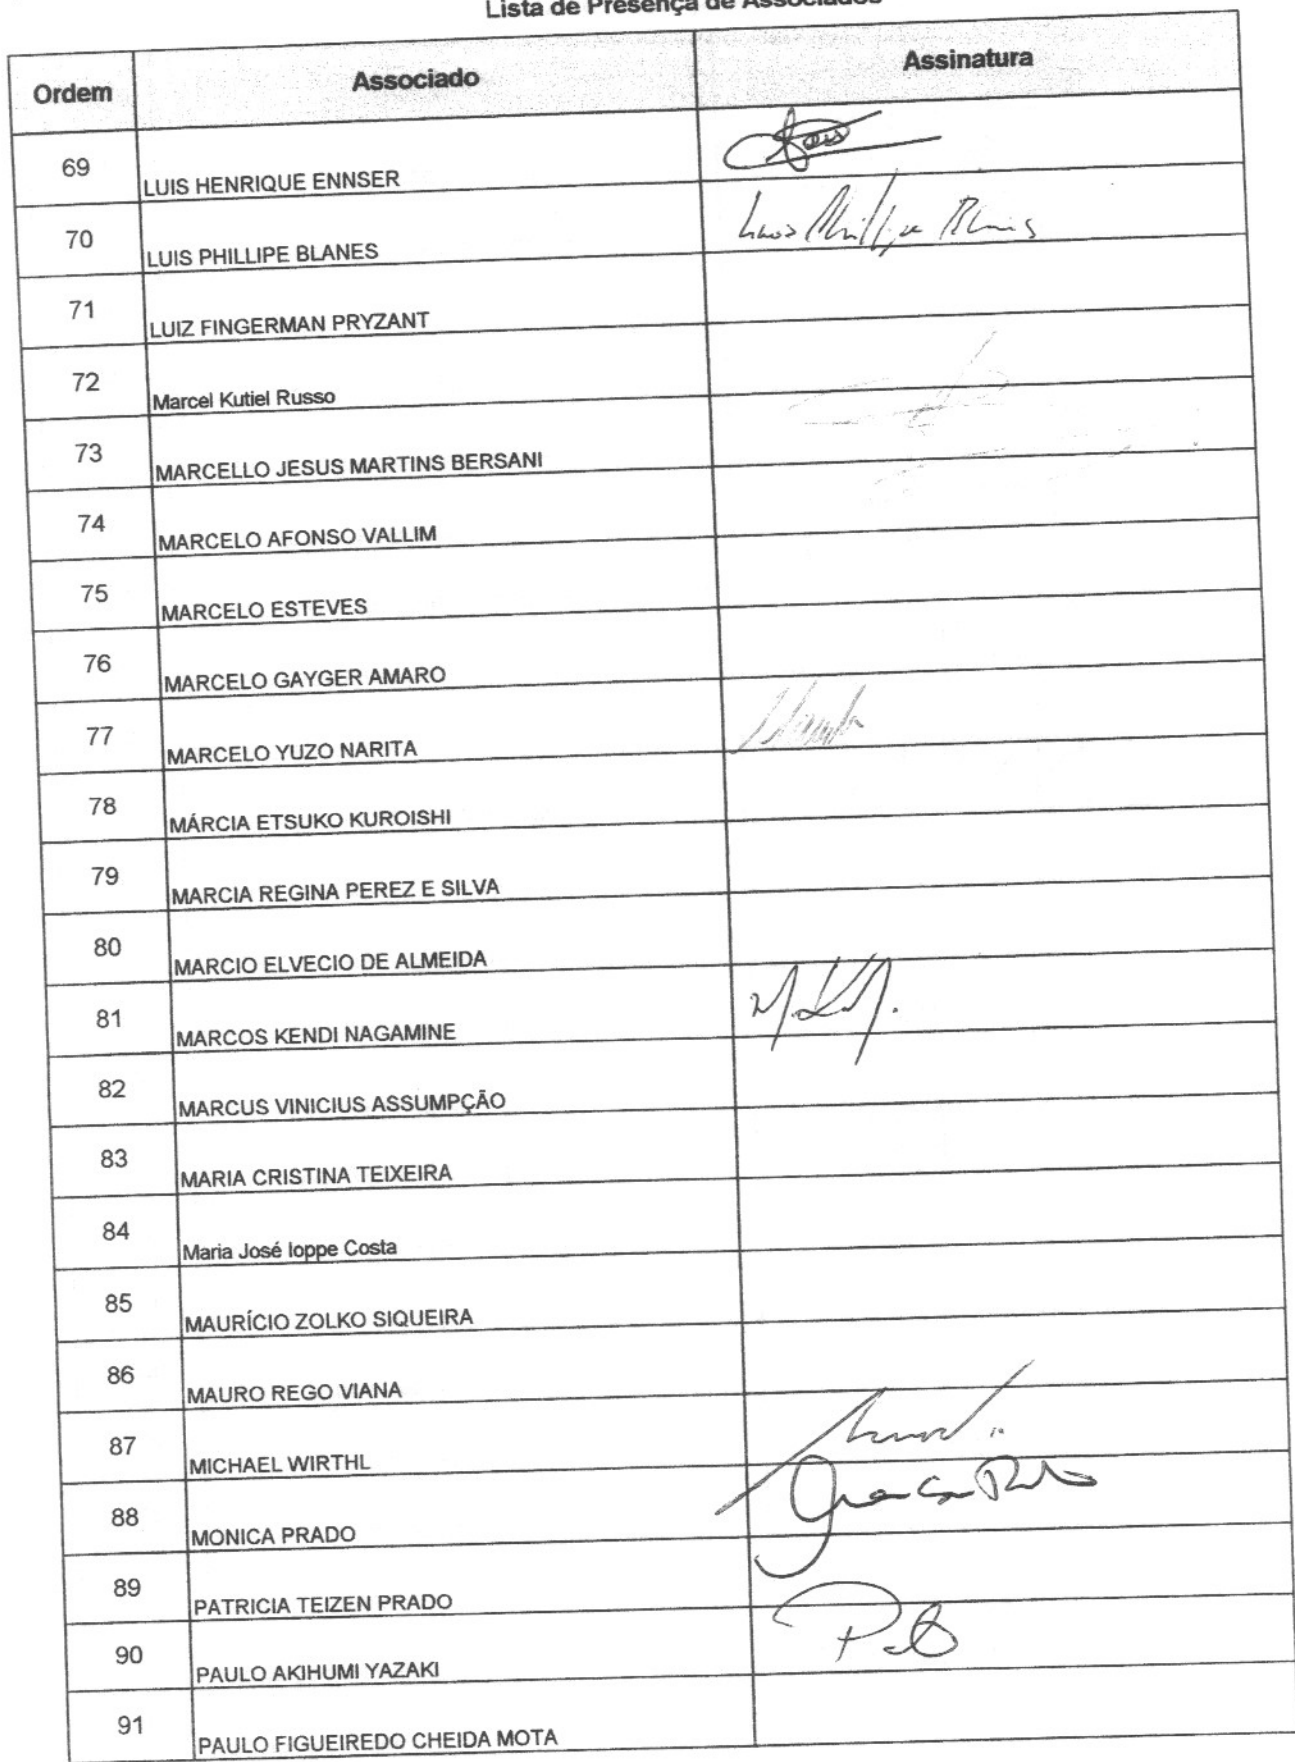 Lista de Presença de Associados
Ordem Associado Assinatura
69 LUIS HENRIQUE ENNSER
70 LUIS PHILLIPE BLANES Luis Phillipe Blanes
71 LUIZ FINGERMAN PRYZANT
72 Marcel Kutiel Russo
73 MARCELLO JESUS MARTINS BERSANI
74 MARCELO AFONSO VALLIM
75 MARCELO ESTEVES
76 MARCELO GAYGER AMARO
77 MARCELO YUZO NARITA
78 MÁRCIA ETSUKO KUROISHI
79 MARCIA REGINA PEREZ E SILVA
80 MARCIO ELVECIO DE ALMEIDA
81 MARCOS KENDI NAGAMINE
82 MARCUS VINICIUS ASSUMPÇÃO
83 MARIA CRISTINA TEIXEIRA
84 Maria José Ioppe Costa
85 MAURÍCIO ZOLKO SIQUEIRA
86 MAURO REGO VIANA
87 MICHAEL WIRTHL
88 MONICA PRADO
89 PATRICIA TEIZEN PRADO
90 PAULO AKIHUMI YAZAKI
91 PAULO FIGUEIREDO CHEIDA MOTA